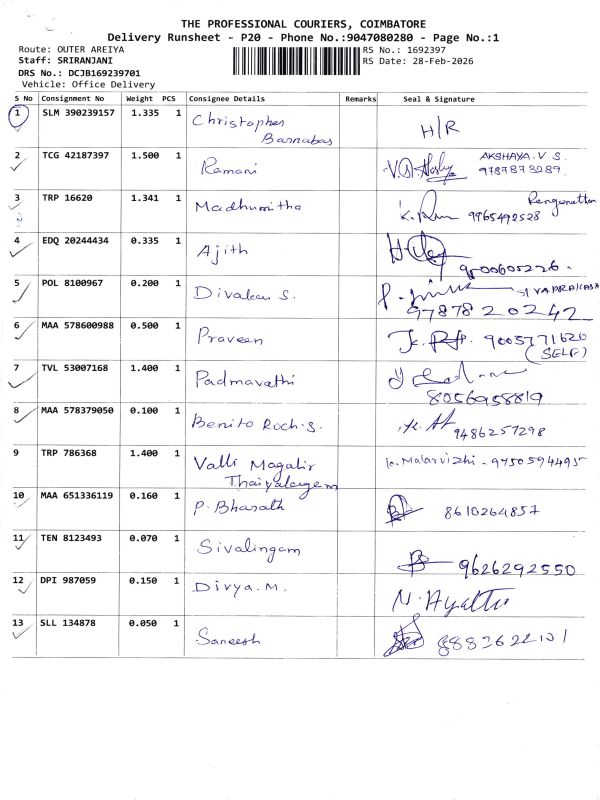 THE PROFESSIONAL COURIERS, COIMBATORE
Delivery Runsheet - P20 - Phone No.:9047080280 - Page No.:1
Route: OUTER AREIYA
RS No.: 1692397
Staff: SRIRANJANI
RS Date: 28-Feb-2026
DRS No.: DCJB169239701
Vehicle: Office Delivery
S No Consignment No Weight PCS Consignee Details Remarks Seal & Signature
1 SLM 390239157 1.335 1 Christopher
Barnabas H/R
2 TCG 42187397 1.500 1 Ramani AKSHAYA. V. S.
9787873289
3 TRP 16620 1.341 1 Madhumitha Renganathan
9965492528
4 EDQ 20244434 0.335 1 Ajith
9500605226.
5 POL 8100967 0.200 1 Divakar S. SIVAPRAKASH
9787820242
6 MAA 578600988 0.500 1 Praveen 9005771620
(SELF)
7 TVL 53007168 1.400 1 Padmavathi
8056958819
8 MAA 578379050 0.100 1 Benito Roch.S.
9486257298
9 TRP 786368 1.400 1 Valli Magalir K. Malarvizhi - 9750594495
Thaiyalagem
10 MAA 651336119 0.160 1 P. Bharath 8610264857
11 TEN 8123493 0.070 1 Sivalingam
9626292550
12 DPI 987059 0.150 1 Divya.M.
13 SLL 134878 0.050 1 Saneesh